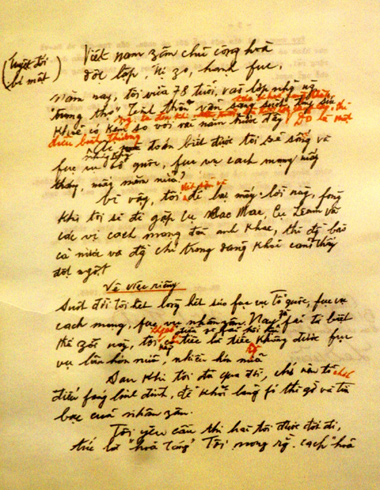 (Tuyệt đối
bí mật)
Việt nam zân chủ cộng hoà
độc lập, tự zo, hạnh fúc.
Năm nay, tôi vừa 78 tuổi, vào lớp những ng
"trung thọ". Tinh thần vẫn sáng suốt
khoẻ có kém so với vài năm trước đây. Đó là một
điều bình thường
ai đoán biết được tôi sẽ sống và
fục vụ tổ quốc, fục vụ cách mạng mấy
tháng, mấy năm nữa?
Vì vậy, tôi để lại mấy lời này, fòng
khi tôi sẽ đi gặp cụ Mác, cụ Lênin và
các vị cách mạng đàn anh khác, thì đồng bào
cả nước và đồng chí trong đảng khỏi cảm thấy
đột ngột
Về việc riêng
Suốt đời tôi hết lòng hết sức fục vụ tổ quốc, fục vụ
cách mạng, fục vụ nhân zân. Nay zù fải từ biệt
thế zới này, tôi tiếc là tiếc không được fục
vụ lâu hơn nữa, nhiều hơn nữa
Sau khi tôi đã qua đời, chớ nên tổ chức
điếu fúng linh đình, để khỏi lãng fí thì zờ và tiền
bạc của nhân zân.
Tôi yêu cầu thi hài tôi được đốt đi,
tức là "hoả táng". Tôi mong rằng cách "hoả